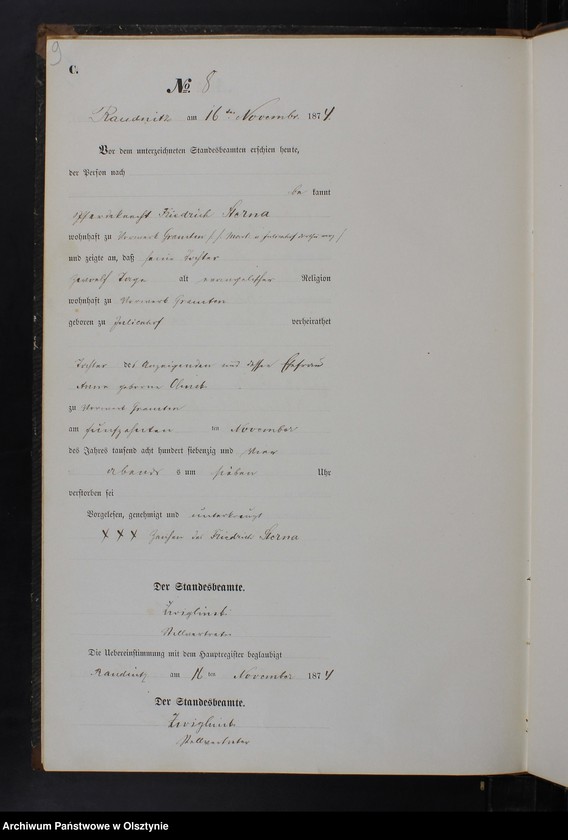 9
C.
No. 8
Raudnitz am 16 ten November 1874.
Vor dem unterzeichneten Standesbeamten erschien heute,
der Person nach
be kannt
Friedrich Storna
wohnhaft zu Vorwerk Gramten
und zeigte an, daß seine Tochter
Tage alt evangelischer Religion
wohnhaft zu Vorwerk Gramten
geboren zu Julienhof verheirathet
Tochter des Anzeigenden und dessen Ehefrau
Anna geborene
zu Vorwerk Gramten
am fünfzehnten ten November
des Jahres tausend acht hundert siebenzig und vier
Abends s um sieben Uhr
verstorben sei
Vorgelesen, genehmigt und unterkreuzt
XXX Friedrich Storna
Der Standesbeamte.
Stellvertreter
Die Uebereinstimmung mit dem Hauptregister beglaubigt
Raudnitz am 16 ten November 1874
Der Standesbeamte.
Stellvertreter
Archiwum Państwowe w Olsztynie